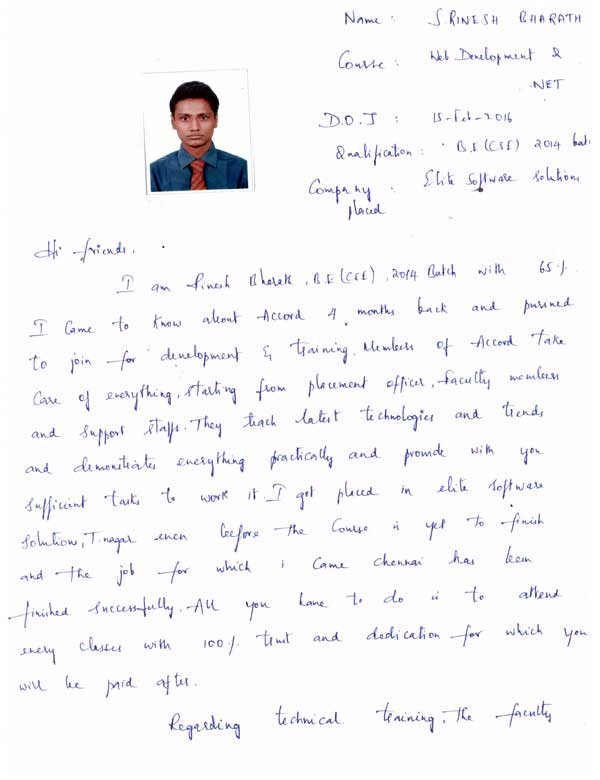 Name : S.RINESH BHARATH
Course : Web Development &
.NET
D.O.J : 15-Feb-2016
Qualification : B.E (CSE) 2014 batc
Company : Elite Software Solutions
placed
Hi friends,
I am Rinesh Bharath, B.E (CSE), 2014 Batch with 65%.
I came to know about Accord 4 months back and pursued
to join for development & training. Members of Accord take
care of everything, starting from placement officer, faculty members
and support staffs. They teach latest technologies and trends
and demonstrates everything practically and provide with you
sufficient tasks to work it. I got placed in elite software
solutions, T.nagar even before the course is yet to finish
and the job for which i came chennai has been
finished successfully. All you have to do is to attend
every classes with 100% trust and dedication for which you
will be paid after.
Regarding technical training, The faculty